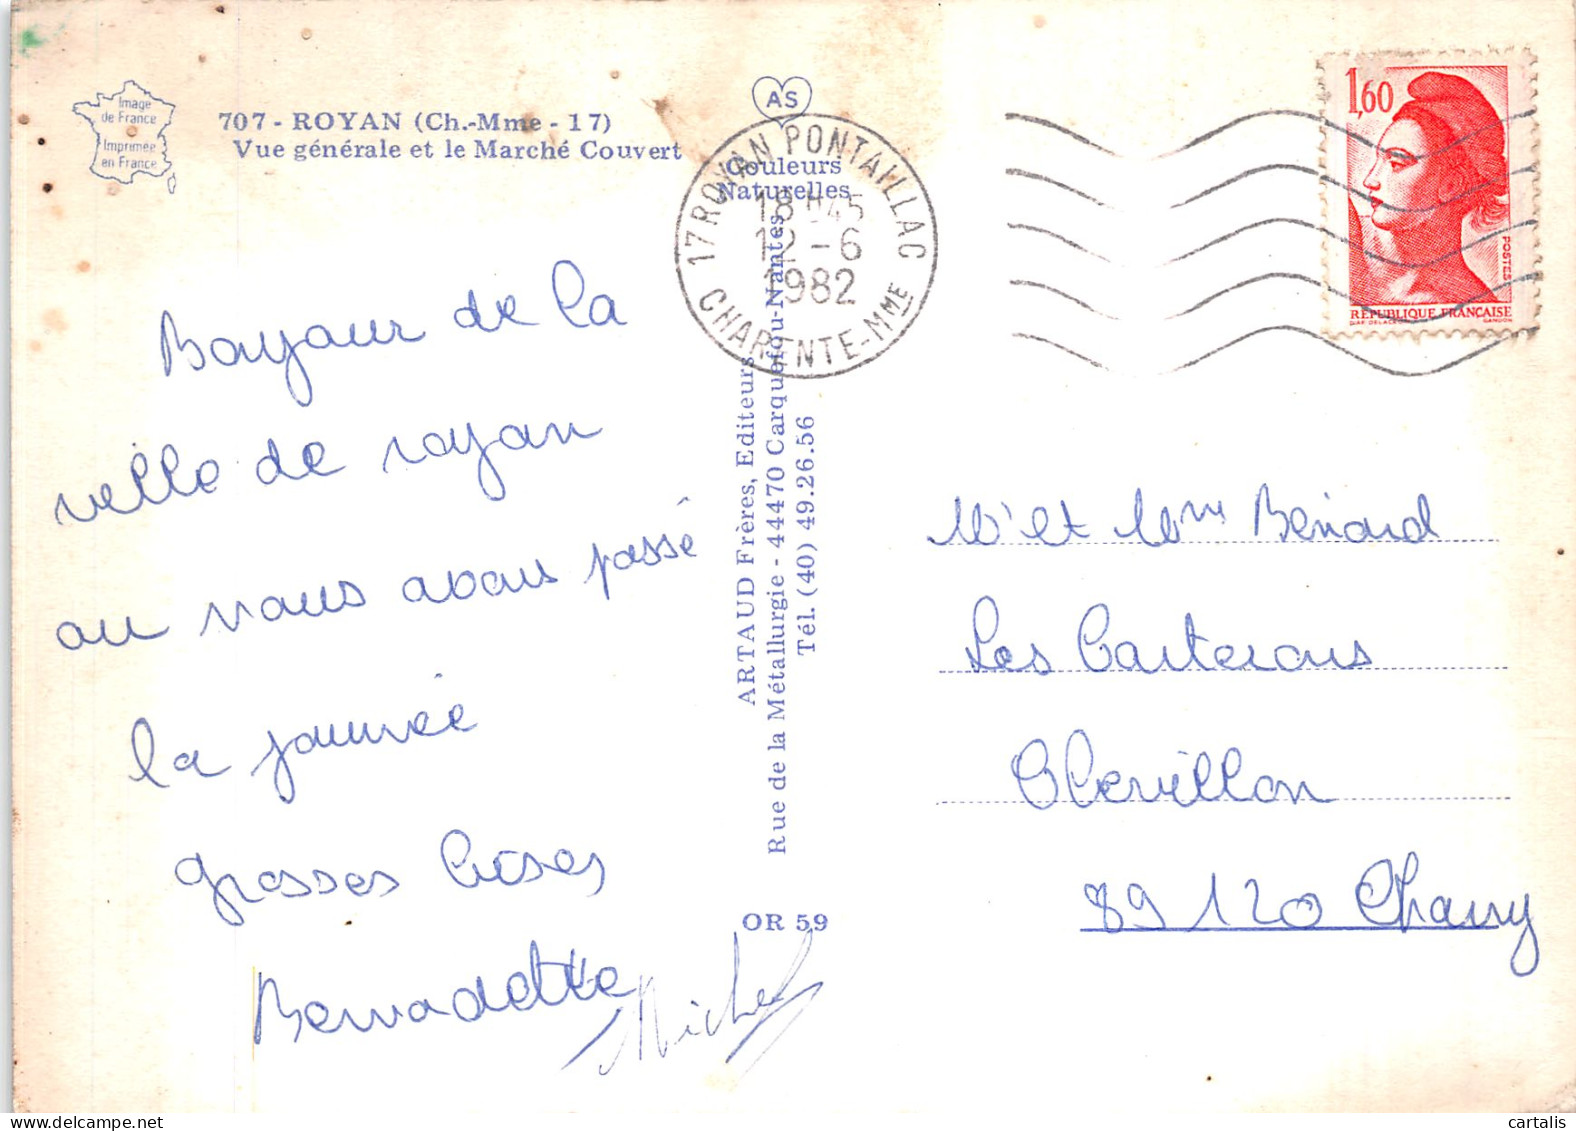 Image
de France
Imprimée
en France
707 - ROYAN (Ch.-Mme - 17)
Vue générale et le Marché Couvert
AS
Couleurs
Naturelles
17 ROYAN PONTAILLAC
18H45
12-6
1982
CHARENTE-MME
1,60
POSTES
RÉPUBLIQUE FRANÇAISE
GANDON
Bonjour de la
ville de royan
ou nous avons passé
la journée
grosses bises
Bernadette
Michel
ARTAUD Frères, Editeurs
Rue de la Métallurgie - 44470 Carquefou-Nantes
Tél. (40) 49.26.56
OR 59
Mr et Mme Bénard
Les Carterons
Chevillon
89120 Charny
cartalis